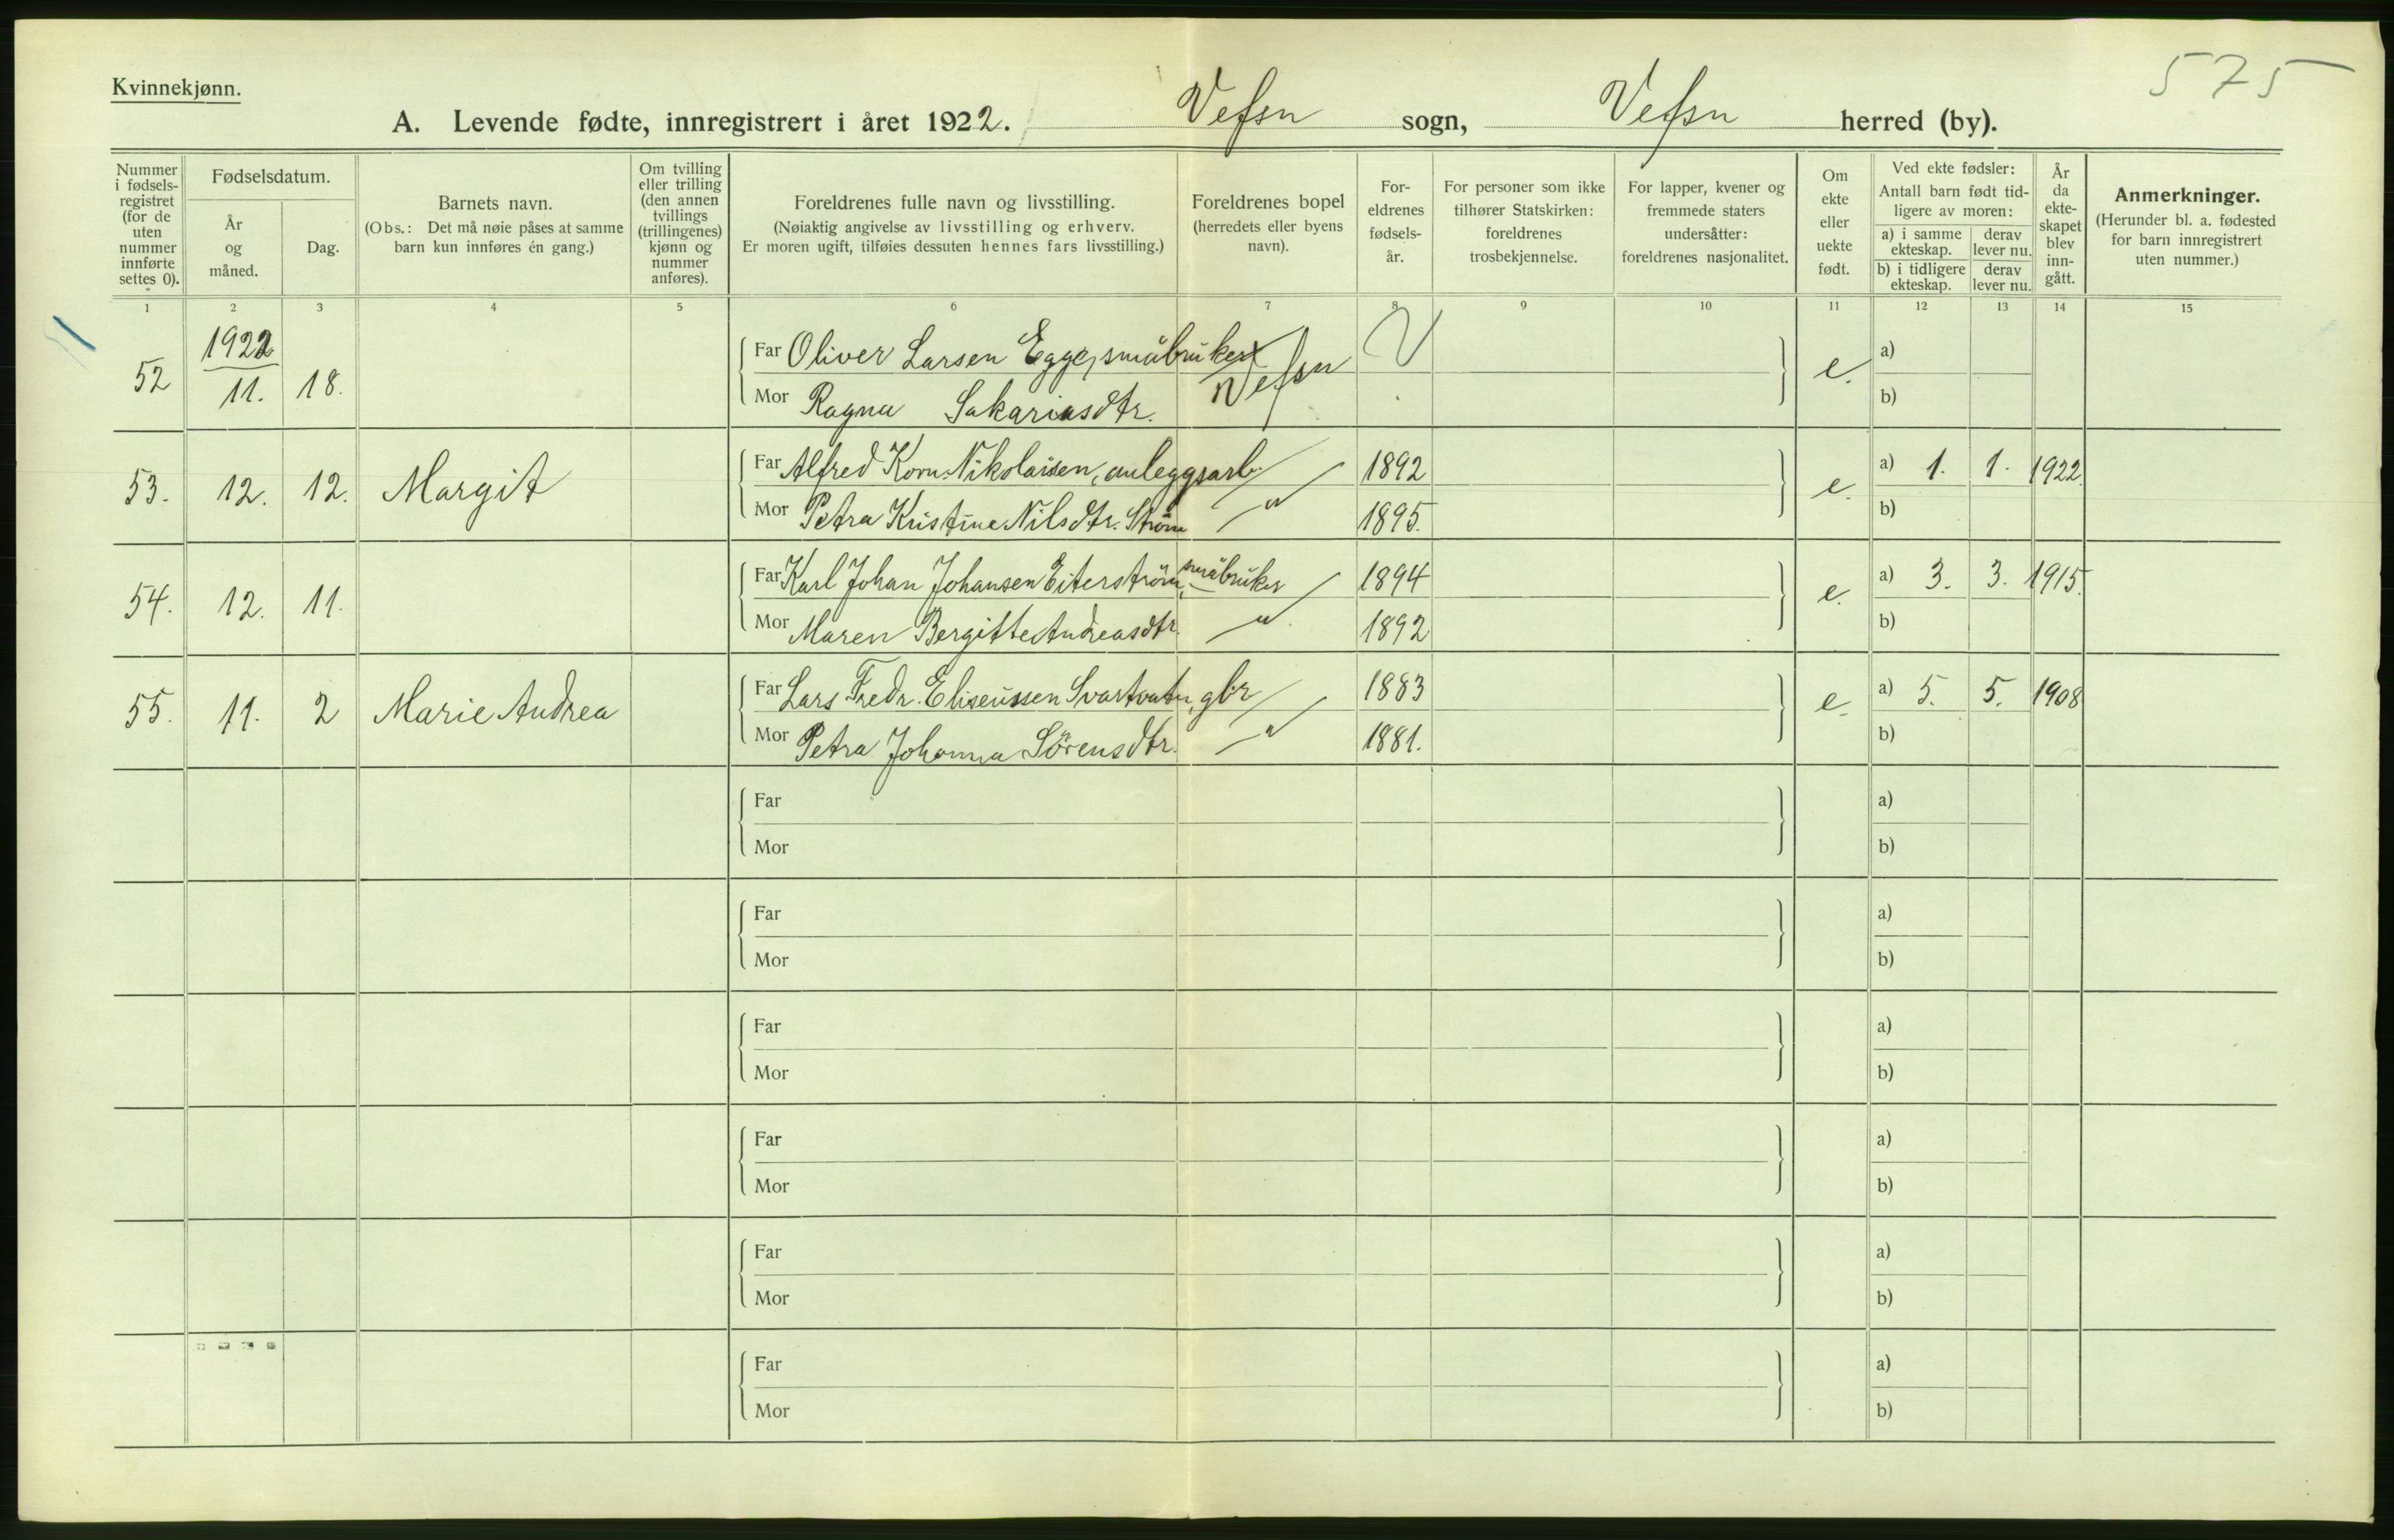 575
Kvinnekjønn.
A. Levende fødte, innregistrert i året 1922. Vefsn sogn, Vefsn herred (by).
Nummer i fødselsregistret (for de uten nummer innførte settes 0).
Fødselsdatum.
År og måned.
Dag.
Barnets navn.
(Obs.: Det må nøie påses at samme barn kun innføres én gang.)
Om tvilling eller trilling (den annen tvillings (trillingenes) kjønn og nummer anføres).
Foreldrenes fulle navn og livsstilling.
(Nøiaktig angivelse av livsstilling og erhverv.
Er moren ugift, tilføies dessuten hennes fars livsstilling.)
Foreldrenes bopel
(herredets eller byens navn).
Foreldrenes fødselsår.
For personer som ikke tilhører Statskirken: foreldrenes trosbekjennelse.
For lapper, kvener og fremmede staters undersåtter: foreldrenes nasjonalitet.
Om ekte eller uekte født.
Ved ekte fødsler:
Antall barn født tidligere av moren:
a) i samme ekteskap.
derav lever nu.
b) i tidligere ekteskap.
derav lever nu.
År da ekteskapet blev inngått.
Anmerkninger.
(Herunder bl. a. fødested for barn innregistrert uten nummer.)
1 2 3 4 5 6 7 8 9 10 11 12 13 14 15
52 1922 11. 18. Far Oliver Larsen Egge, småbruker Vefsn e. a)
Mor Ragna Sakariasdtr. b)
53. 12. 12. Margit Far Alfred Korn. Nikolaisen, anleggsarb. 1892 e. a) 1. 1. 1922.
Mor Petra Kristine Nilsdtr. Strøm — " — 1895. b)
54. 12. 11. Far Karl Johan Johansen Eiterstrøm, småbruker 1894 e. a) 3. 3. 1915.
Mor Maren Bergitte Andreasdtr. — " — 1892 b)
55. 11. 2 Marie Andrea Far Lars Fredr. Eliseussen Svartvatn, gbr 1883 e. a) 5. 5. 1908
Mor Petra Johanna Sörensdtr. — " — 1881. b)
Far a)
Mor b)
Far a)
Mor b)
Far a)
Mor b)
Far a)
Mor b)
Far a)
Mor b)
Far a)
Mor b)